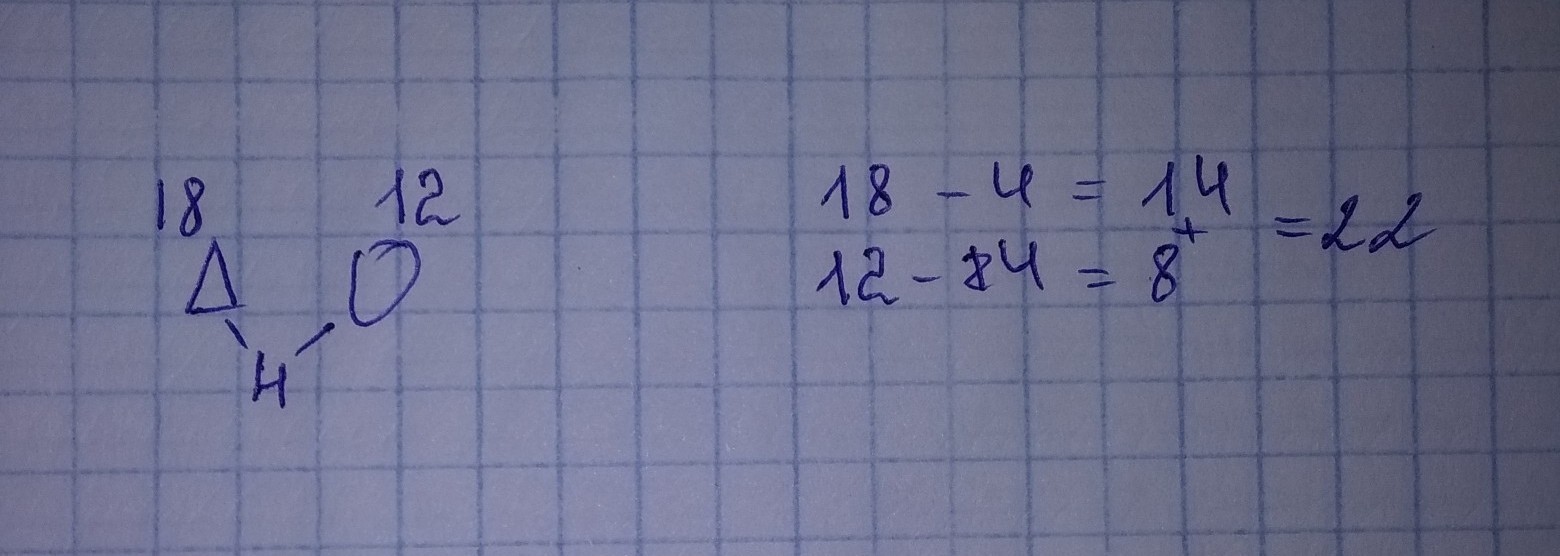 18 12
Δ O
4
18 - 4 = 14
+ = 22
12 - 4 = 8